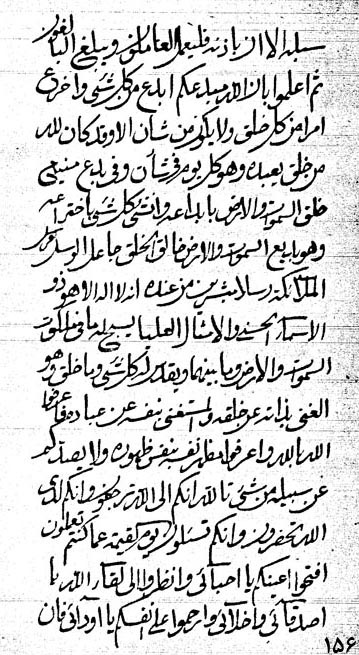 سبيله الا ان ياذنه فليعمل العاملون ويبلغ البالغون
ثم اعلموا بان الله مبدعكم ابدع من كل شئ واخرع
امرا من كل خلق ولا يكون من شان الا وقد كان لله
من خلق يعبده وهو كل يوم فى شأن وفى بدع منيع
خلق السموات والارض بابداعه وانشئ كل شئ باختراعه
وهو بديع السموات والارض خالق الخلق جاعل
الملائكة رسلا مبشرين من عنده انه لا اله الا هو ذو
الاسماء الحسنى والامثال العليا يسبح له ما فى ملكوت
السموات والارض وما بينهما ويقدس له كل شئ وما خلق وهو
الغنى بذاته عن خلقه والمستغنى بنفسه عن عباده فاعرفوا
الله بالله واعرفوا مظهر نفسه بنفس ظهوره ولا يصدنكم
عن سبيله من شئ تالله انكم الى الله ترجعون وانكم لدى
الله تحضرون وانكم تسئلون يوم القيمة عما كنتم تعملون
افتحوا اعينكم يا احبائى وانظروا الى لقاء الله يا
اصدقائى واخلائى وارحموا على انفسكم يا اودائى فان
١٥۶